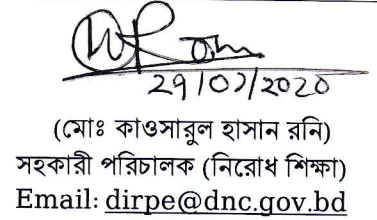 29/07/2020
(মোঃ কাওসারুল হাসান রনি)
সহকারী পরিচালক (নিরোধ শিক্ষা)
Email: dirpe@dnc.gov.bd